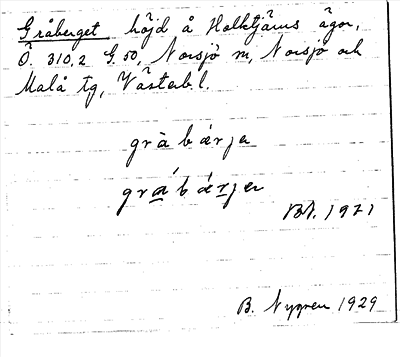 Gråberget höjd å Holktjärns ägor,
Ö. 310,2 G. 50, Norsjö sn, Norsjö och
Malå tg, Västerb. l.
grà bærjer
grá bǽrjer
1971
B. Nygren 1929